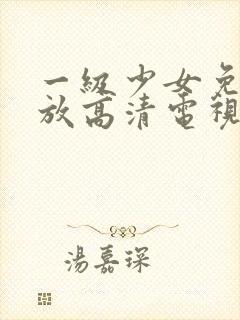 一級少女免
放高清電視
湯嘉琛